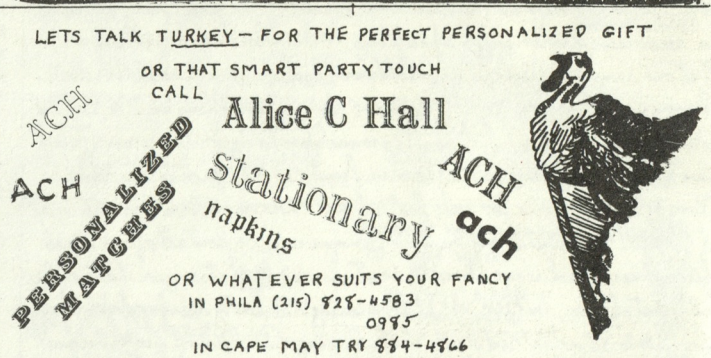 LETS TALK TURKEY — FOR THE PERFECT PERSONALIZED GIFT
OR THAT SMART PARTY TOUCH
CALL
Alice C Hall
ACH
ACH
PERSONALIZED
MATCHES
stationary
napkins
ACH
ach
OR WHATEVER SUITS YOUR FANCY
IN PHILA (215) 828-4583
0985
IN CAPE MAY TRY 884-4866